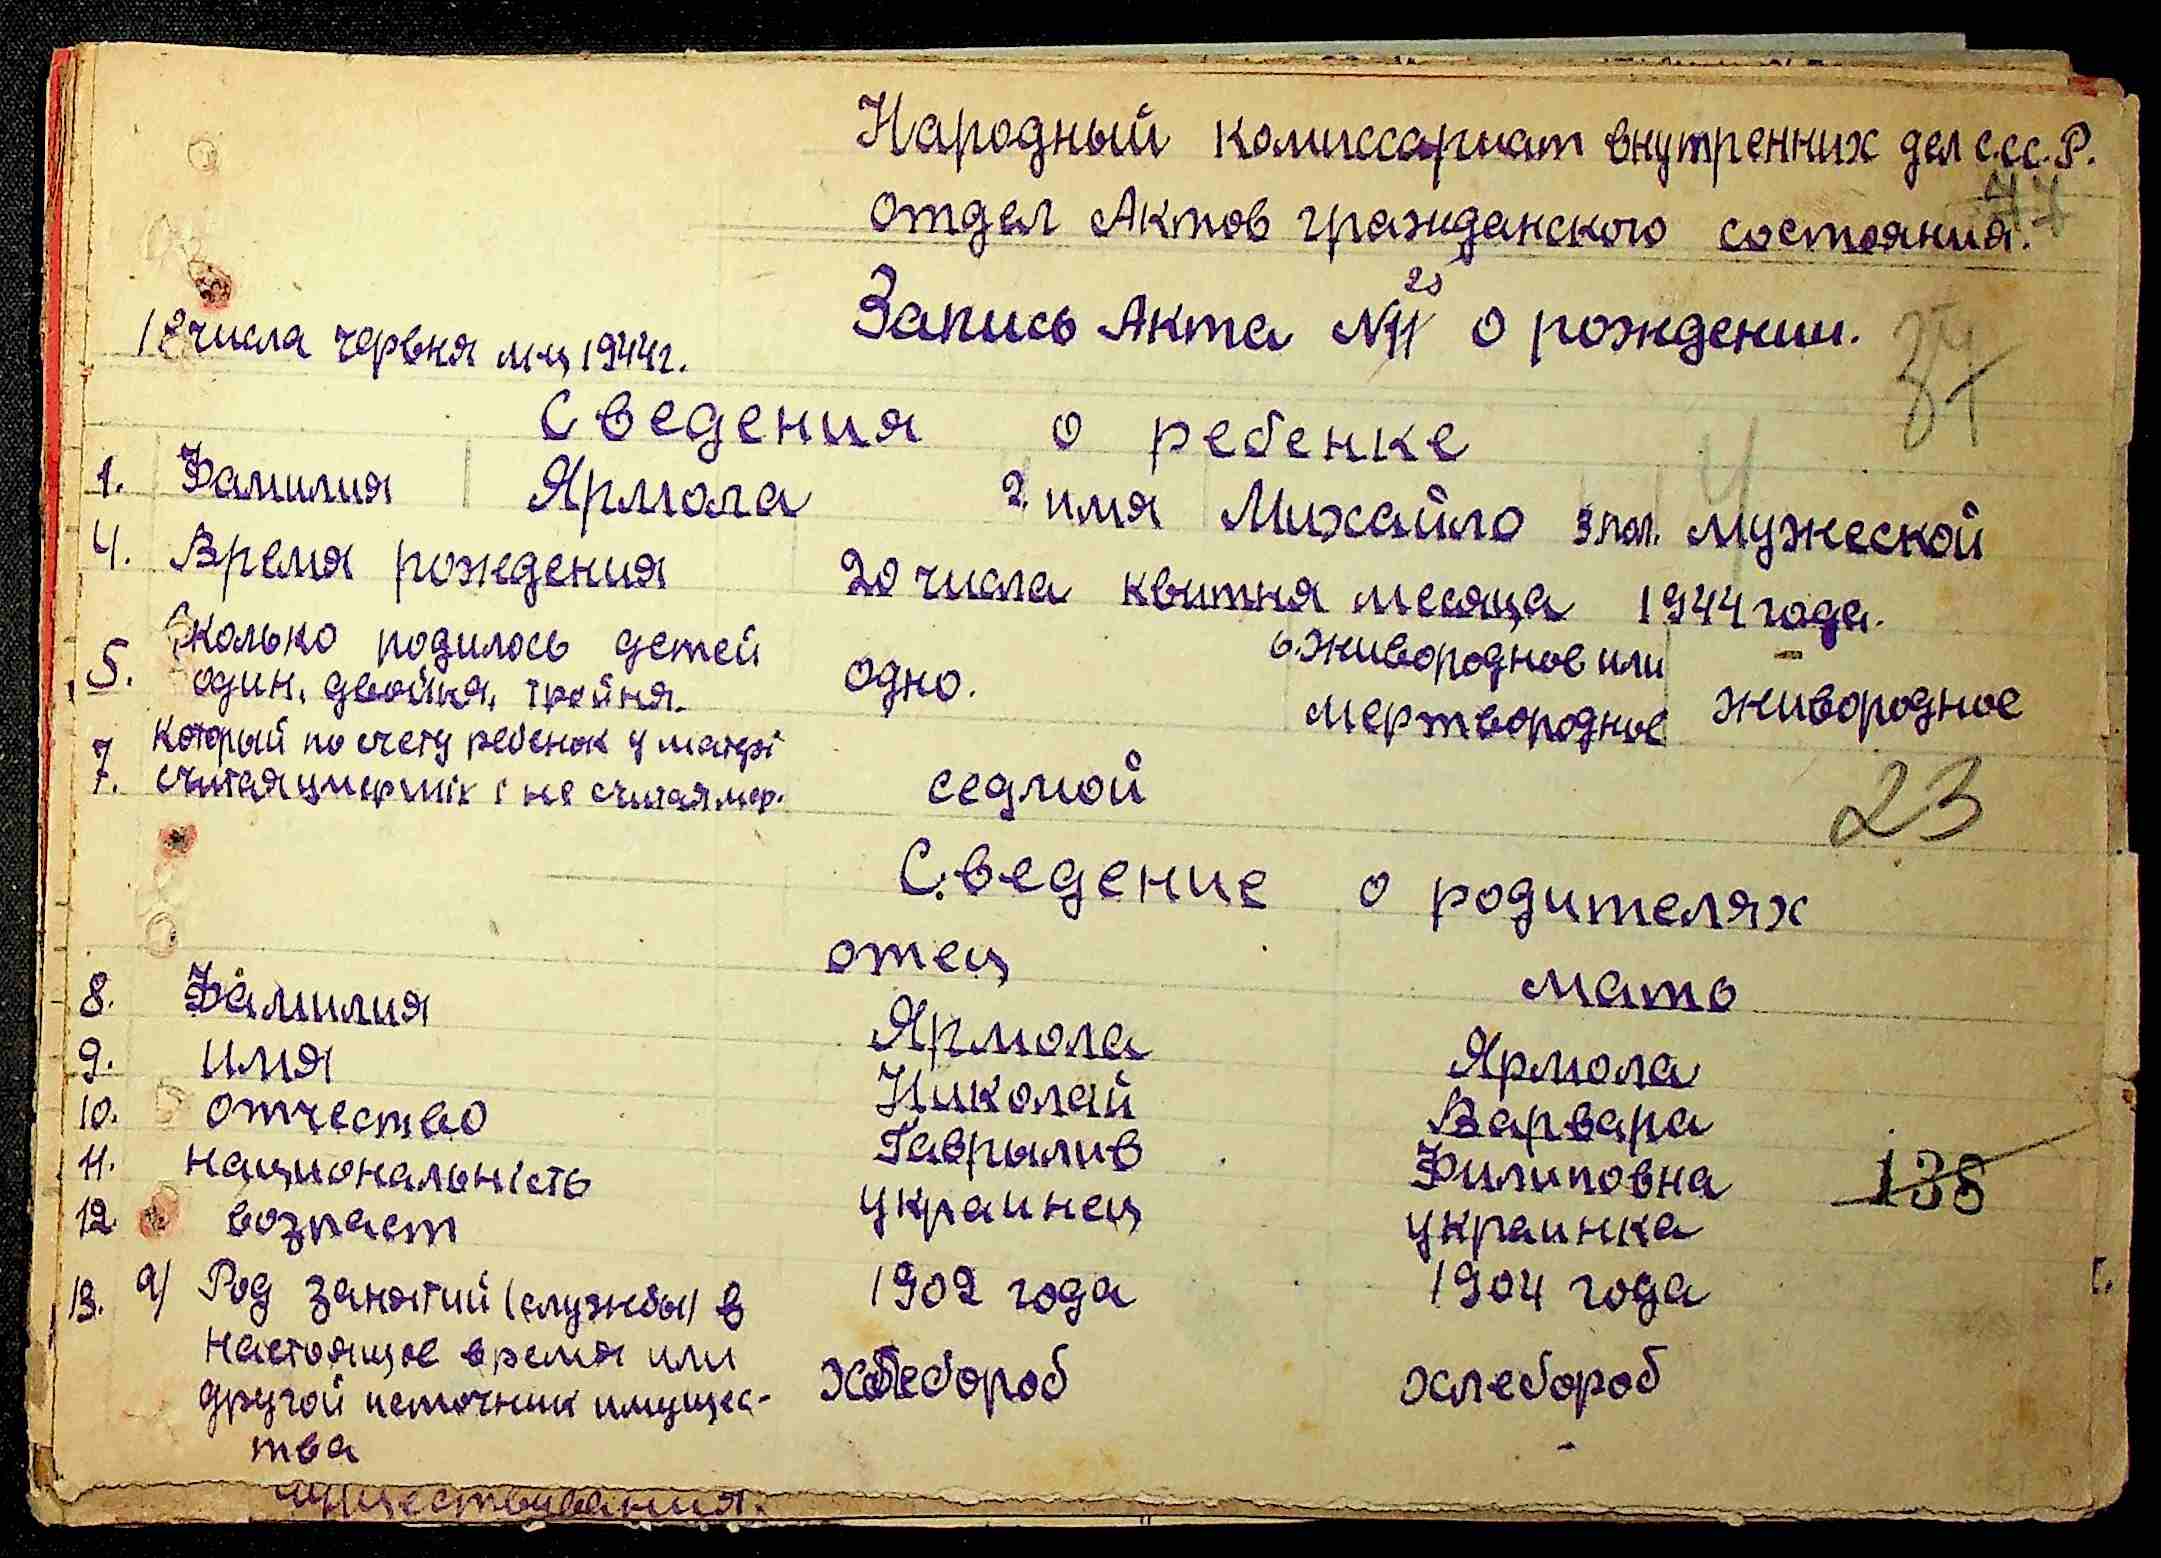 Народный комиссариат внутренних дел с.сс.Р.
отдел Актов гражданского состояния.
Запись Акта № о рождении.
числа червня м-ц 1944г.
Сведения о ребенке
1. Фамилия Ярмола 2. имя Михайло 3 пол. мужеской
4. Время рождения 20 числа квитня месяца 1944 года.
5. Сколько родилось детей один, двойня, тройня. одно. 6. живородное или мертвородное живородное
7. Который по счету ребенок у матері
считая умерших і не считая мер. седмой
23
Сведение о родителях
отец мать
8. Фамилия Ярмола Ярмола
9. имя Николай Варвара
10. отчество Гаврылив Филиповна
11. национальність украинец украинка
138
12 возраст 1902 года 1904 года
13. а) Род занятий (службы) в
настоящее время или
другой источник имущес-
тва хлебороб хлеборob